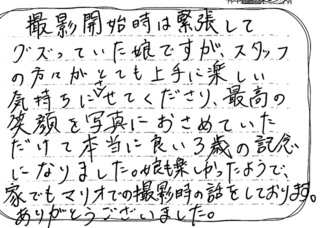 撮影開始時は緊張して
グズっていた娘ですが、スタッフ
の方々がとても上手に楽しい
気持ちにさせてくださり、最高の
笑顔を写真におさめていた
だけて本当に良い3歳の記念
になりました。娘も楽しかったようで、
家でもマリオでの撮影時の話をしております。
ありがとうございました。